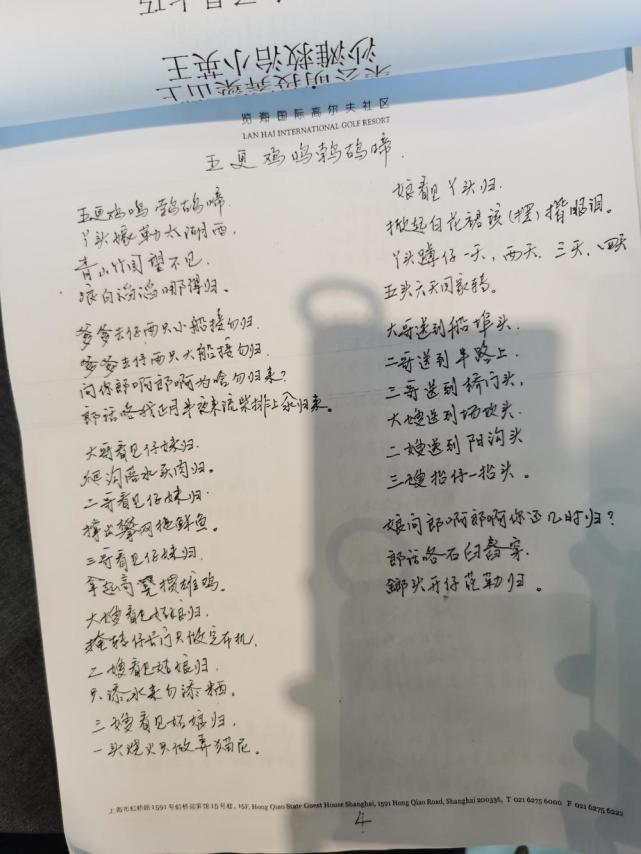 宋公明投奔梁山上
沙滩救治小英王
览海国际高尔夫社区
LAN HAI INTERNATIONAL GOLF RESORT
五更鸡鸣鹁鸪啼.
五更鸡鸣鹁鸪啼.
丫头嫁勒太湖西,
青山竹园望不见
娘白滔滔哪得归。
爹爹去仔两只小船接勿归.
爹爹去仔两只大船接勿归.
问你郎啊郎啊为啥勿归来?
郎话咯我正月半夜来流柴排上氽归来。
大哥看见仔妹归.
烟沟落水买肉归。
二哥看见仔妹归.
撑出攀网捉鲜鱼。
三哥看见仔妹归.
拿起高凳掼雄鸡。
大嫂看见姑娘归.
掩转仔房门只做定布机.
二嫂看见姑娘归.
只添水来勿添粞。
三嫂看见姑娘归,
一头烧火只做弄猫尼。
娘看见丫头归.
掀起白花裙该(摆)揩眼泪。
丫头蹲仔一天,两天、三天、四天
五头六天回家转。
大哥送到船埠头.
二哥送到半路上.
三哥送到桥门头,
大嫂送到场坎头.
二嫂送到阳沟头
三嫂抬仔一抬头。
娘问郎啊郎啊你还几时归?
郎话咯石臼舂穿.
鎯头开仔花勒归。
上海市虹桥路1591号虹桥迎宾馆15号楼, 15F, Hong Qiao State Guest House Shanghai, 1591 Hong Qiao Road, Shanghai 200336, T 021 6275 6000 F 021 6275 6222
4